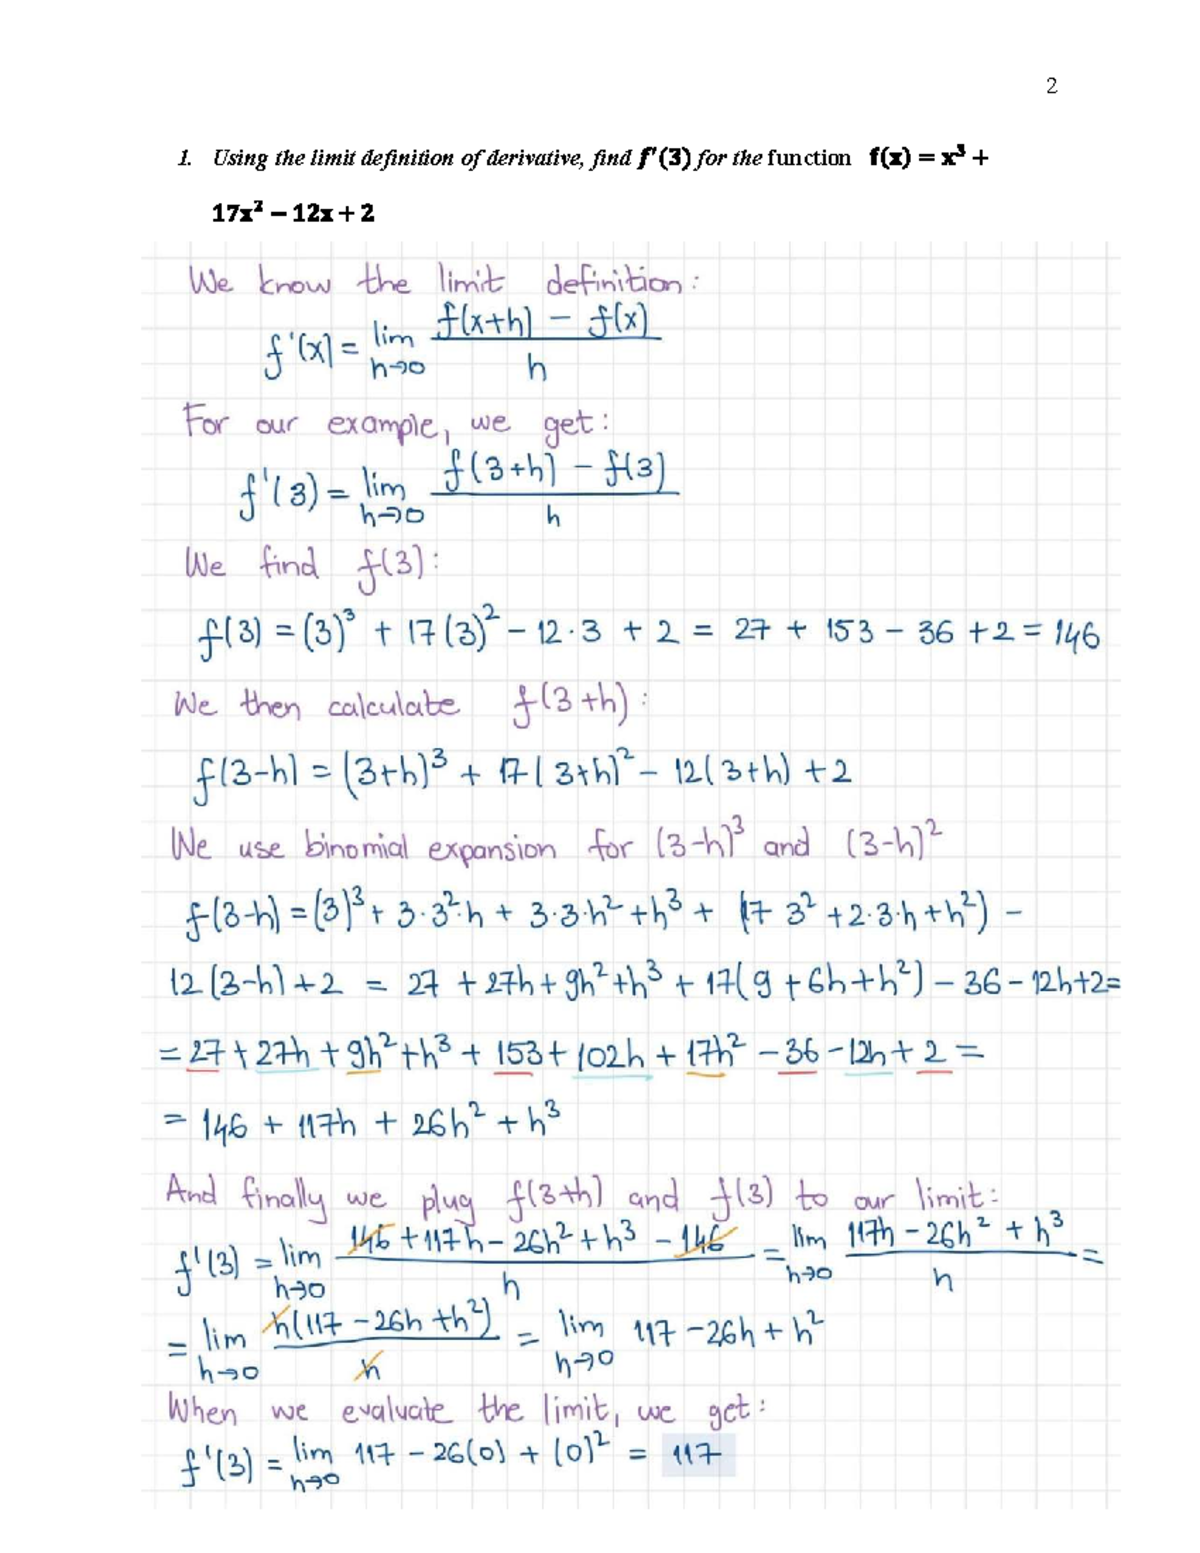 2
1. Using the limit definition of derivative, find f'(3) for the function f(x) = x³ +
17x² − 12x + 2
We know the limit definition:
f'(x) = lim h→0 f(x+h) − f(x) / h
For our example, we get:
f'(3) = lim h→0 f(3+h) − f(3) / h
We find f(3):
f(3) = (3)³ + 17(3)² − 12·3 + 2 = 27 + 153 − 36 + 2 = 146
We then calculate f(3+h):
f(3−h) = (3+h)³ + 17(3+h)² − 12(3+h) + 2
We use binomial expansion for (3−h)³ and (3−h)²
f(3−h) = (3)³ + 3·3²·h + 3·3·h² + h³ + (17 3² + 2·3·h + h²) −
12(3−h) + 2 = 27 + 27h + 9h² + h³ + 17(9 + 6h + h²) − 36 − 12h + 2 =
= 27 + 27h + 9h² + h³ + 153 + 102h + 17h² − 36 − 12h + 2 =
= 146 + 117h + 26h² + h³
And finally we plug f(3+h) and f(3) to our limit:
f'(3) = lim h→0 146 + 117h − 26h² + h³ − 146 / h = lim h→0 117h − 26h² + h³ / h =
= lim h→0 h(117 − 26h + h²) / h = lim h→0 117 − 26h + h²
When we evaluate the limit, we get:
f'(3) = lim h→0 117 − 26(0) + (0)² = 117